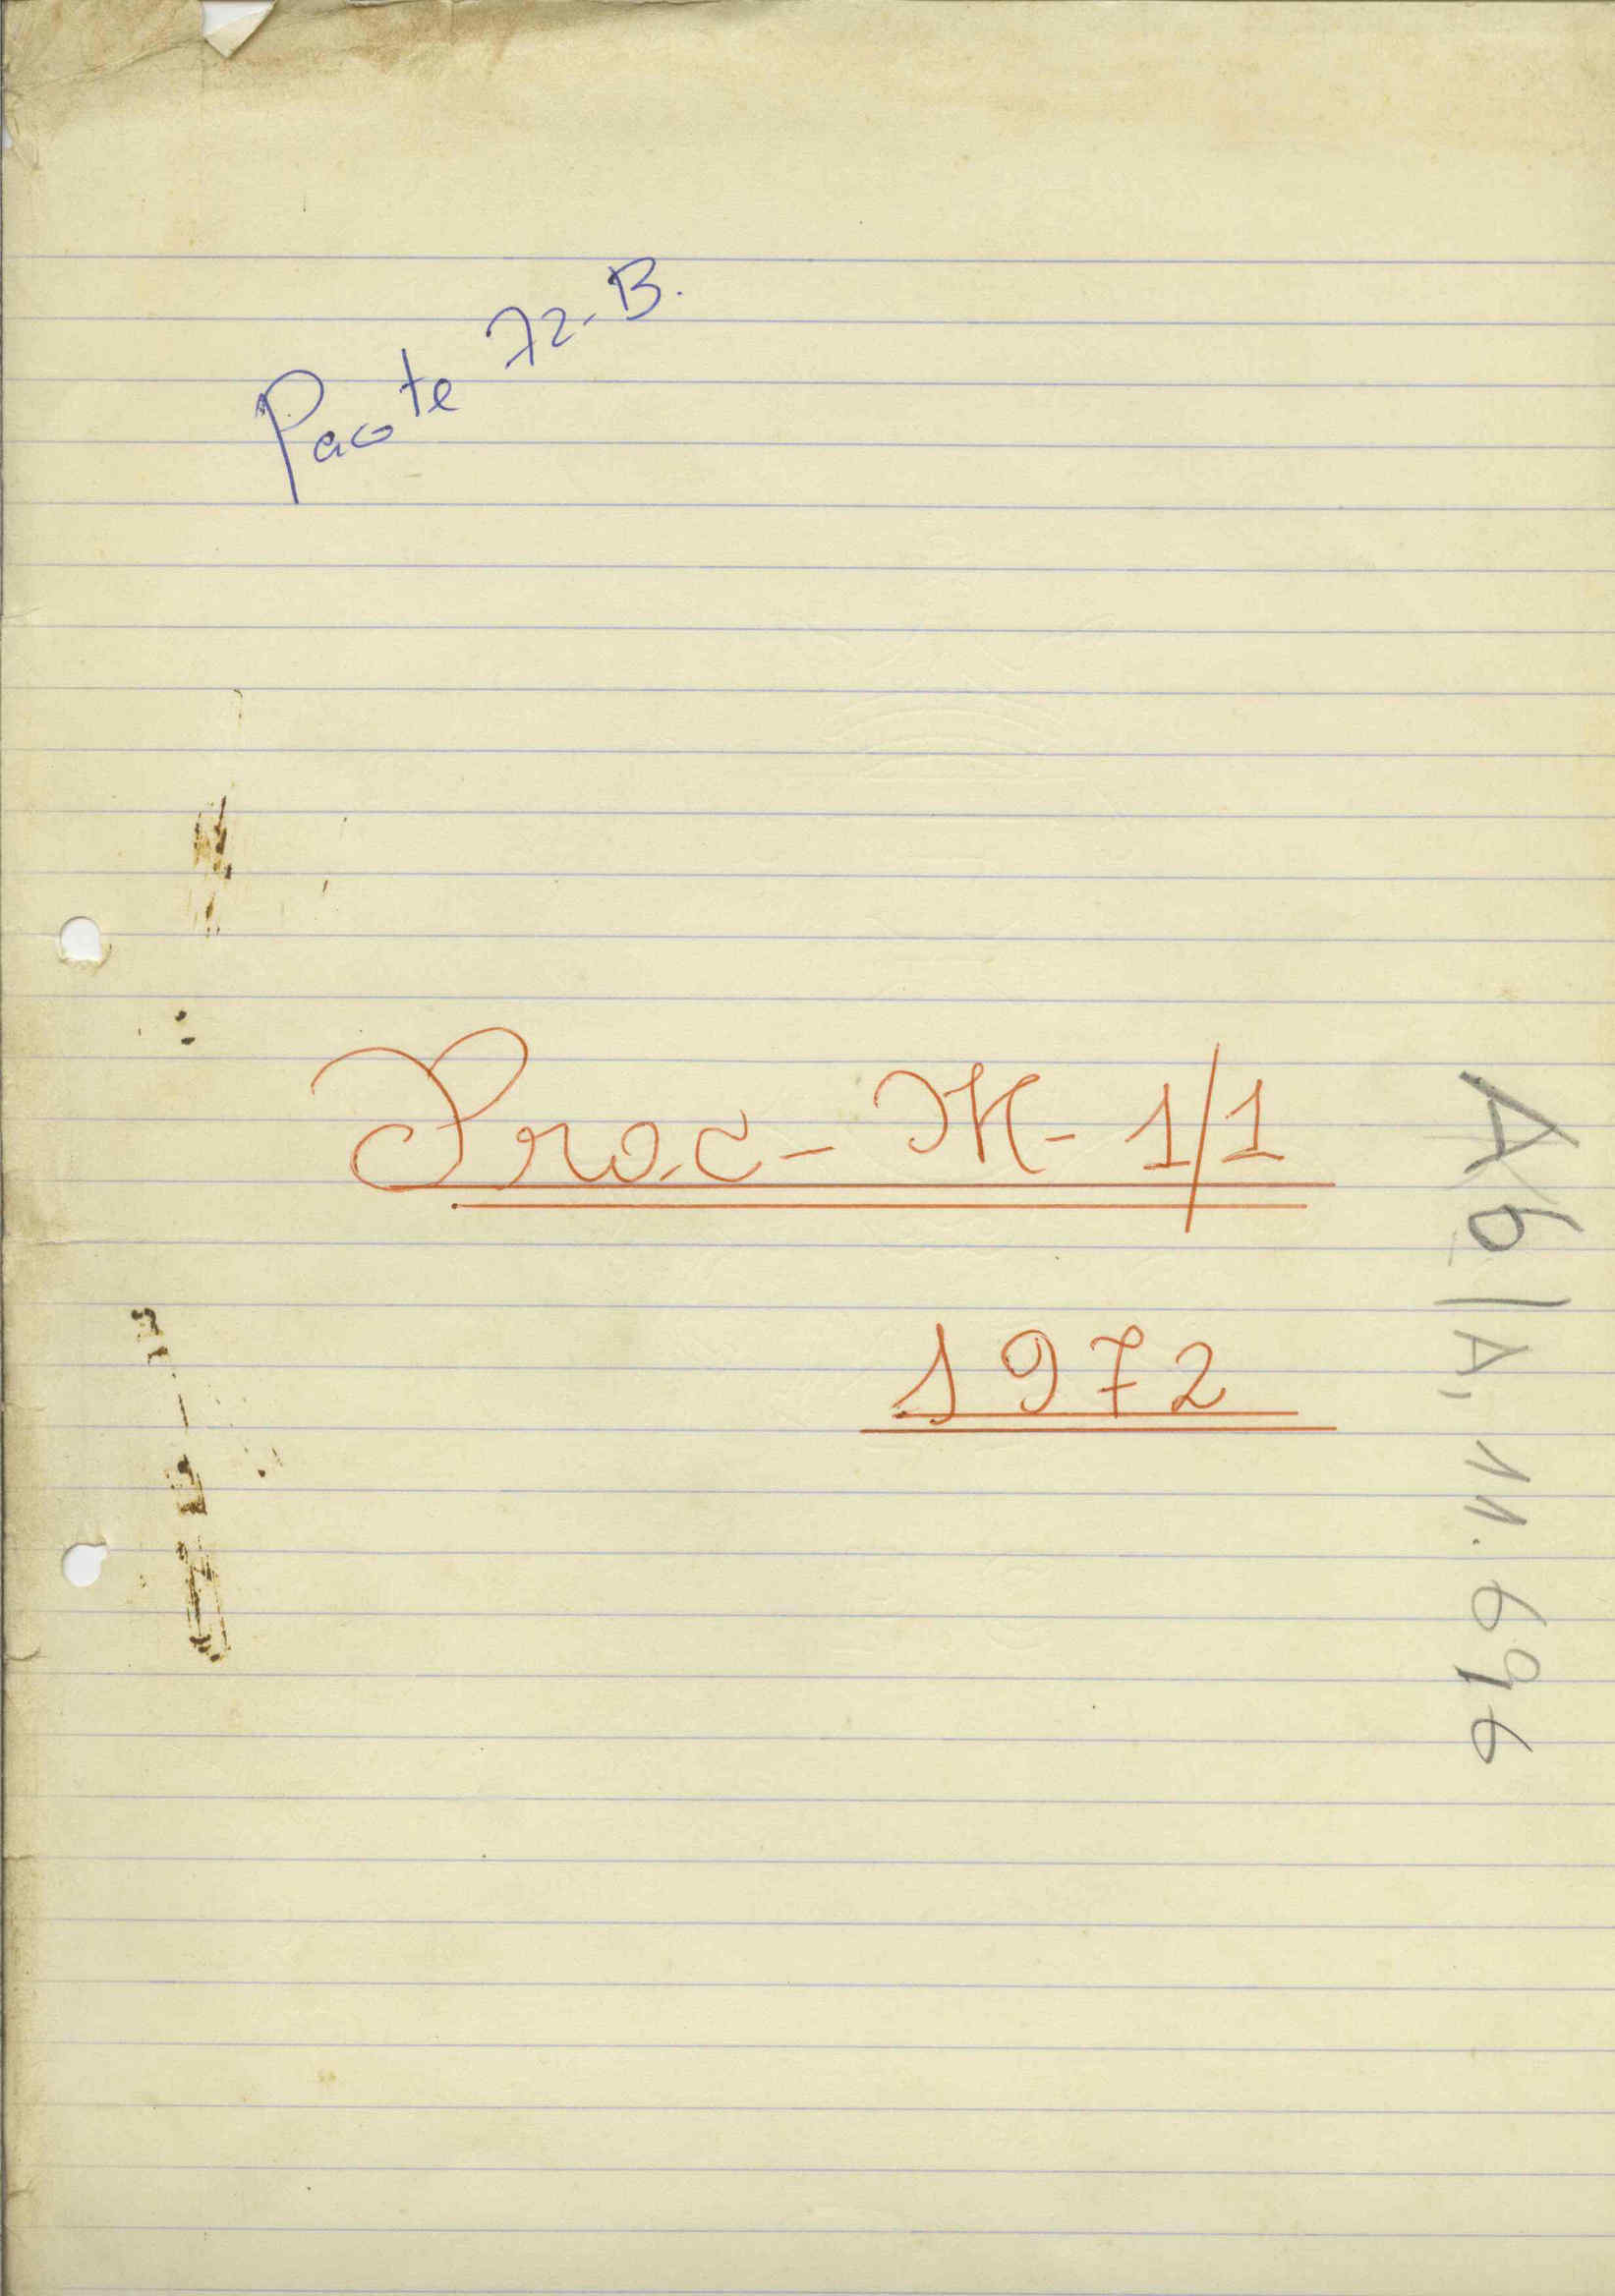 Pacote 72-B.
Proc- K- 1/1
1972
Ab/A, 11.696